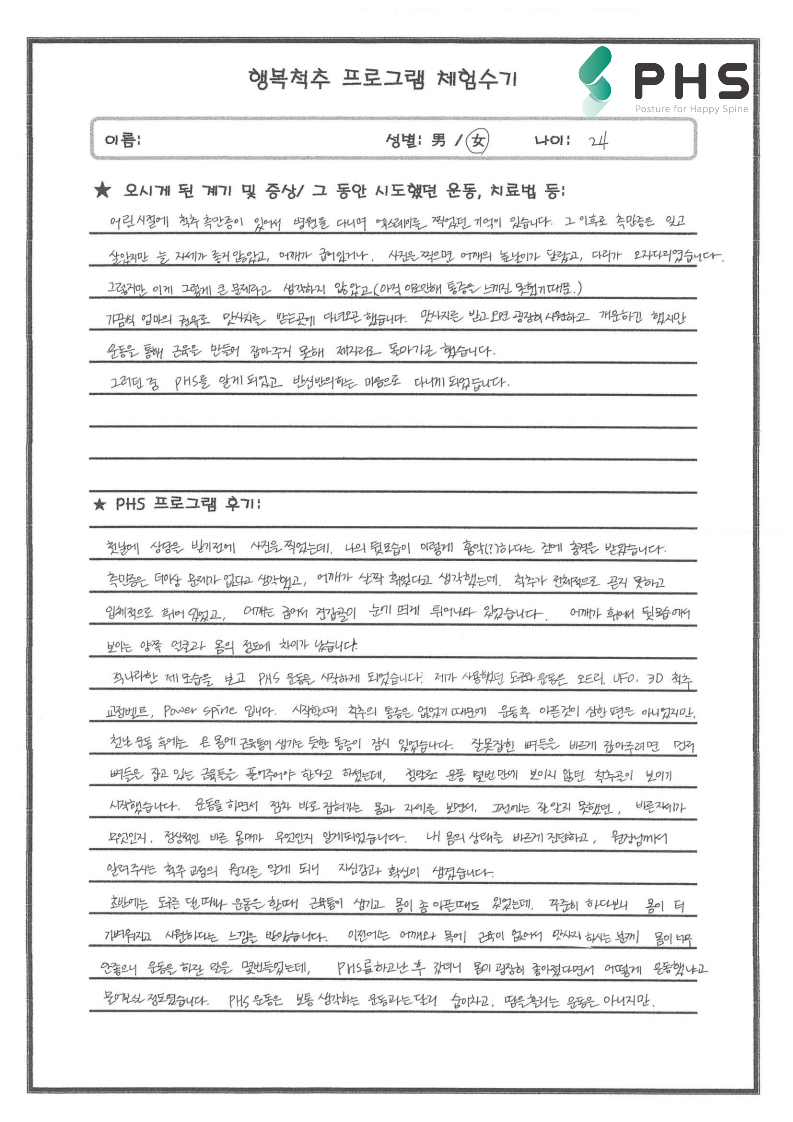 행복척추 프로그램 체험수기
PHS
Posture for Happy Spine
이름: 성별: 男 / 女 나이: 24
★ 오시게 된 계기 및 증상/ 그 동안 시도했던 운동, 치료법 등:
어린시절에 척추측만증이 있어서 병원을 다니며 엑스레이를 찍었던 기억이 있습니다. 그 이후로 측만증은 잊고
살았지만 늘 자세가 좋지 않았고, 어깨가 굽어있거나, 사진을 찍으면 어깨의 높낮이가 달랐고, 다리가 오자다리였습니다.
그렇지만 이게 그렇게 큰 문제라고 생각하지 않았고(아직 이로인해 통증을 느끼진 못했기때문.)
가끔씩 엄마의 권유로 맛사지를 받는곳에 다녀오곤 했습니다. 맛사지를 받고 오면 굉장히 시원하고 개운하긴 했지만
운동을 통해 근육을 만들어 잡아주지 못해 제자리로 돌아가곤 했습니다.
그러던 중 PHS를 알게 되었고 반신반의하는 마음으로 다니게 되었습니다.
★ PHS 프로그램 후기:
첫날에 상담을 받기전에 사진을 찍었는데, 나의 뒷모습이 이렇게 흉악(??)하다는 것에 충격을 받았습니다.
측만증은 더이상 문제가 없다고 생각했고, 어깨가 살짝 휘었다고 생각했는데, 척추가 전체적으로 곧지 못하고
입체적으로 휘어 있었고, 어깨는 굽어서 견갑골이 눈에 띄게 튀어나와 있었습니다. 어깨가 휘어서 뒷모습에서
보이는 양쪽 얼굴과 몸의 정도에 차이가 났습니다.
초라한 제 모습을 보고 PHS 운동을 시작하게 되었습니다. 제가 사용했던 도구와 운동은 오트리, UFO, 3D 척추
교정벨트, Power spine 입니다. 시작할때 척추의 통증은 없었기 때문에 운동후 아픈것이 심한 편은 아니었지만,
첫날 운동 후에는 온 몸에 근육통이 생기는 듯한 통증이 잠시 있었습니다. 잘못잡힌 뼈들을 바르게 잡아주려면 먼저
뼈들을 잡고 있는 근육들을 풀어주어야 한다고 하셨는데, 정말로 운동 몇번만에 보이지 않던 척추골이 보이기
시작했습니다. 운동을 하면서 점차 바로 잡혀가는 몸과 자세를 보면서, 그전에는 잘 알지 못했던, 바른자세가
무엇인지, 정상적인 바른 몸매가 무엇인지 알게되었습니다. 내 몸의 상태를 바르게 진단하고, 원장님께서
알려주시는 척추 교정의 원리를 알게 되니 자신감과 확신이 생겼습니다.
초반에는 도구를 댈 때나 운동을 할때 근육통이 생기고 몸이 좀 아플때도 있었는데, 꾸준히 하다보니 몸이 더
가벼워지고 시원하다는 느낌을 받았습니다. 이전에는 어깨와 목에 근육이 없어서 맛사지 하시는 분께 몸이 너무
안좋으니 운동을 하란 말을 몇번들었는데, PHS를하고난 후 갔더니 몸이 굉장히 좋아졌다면서 어떻게 운동했냐고
물어보실 정도였습니다. PHS 운동은 보통 생각하는 운동과는 달리 숨이차고, 땀을흘리는 운동은 아니지만,